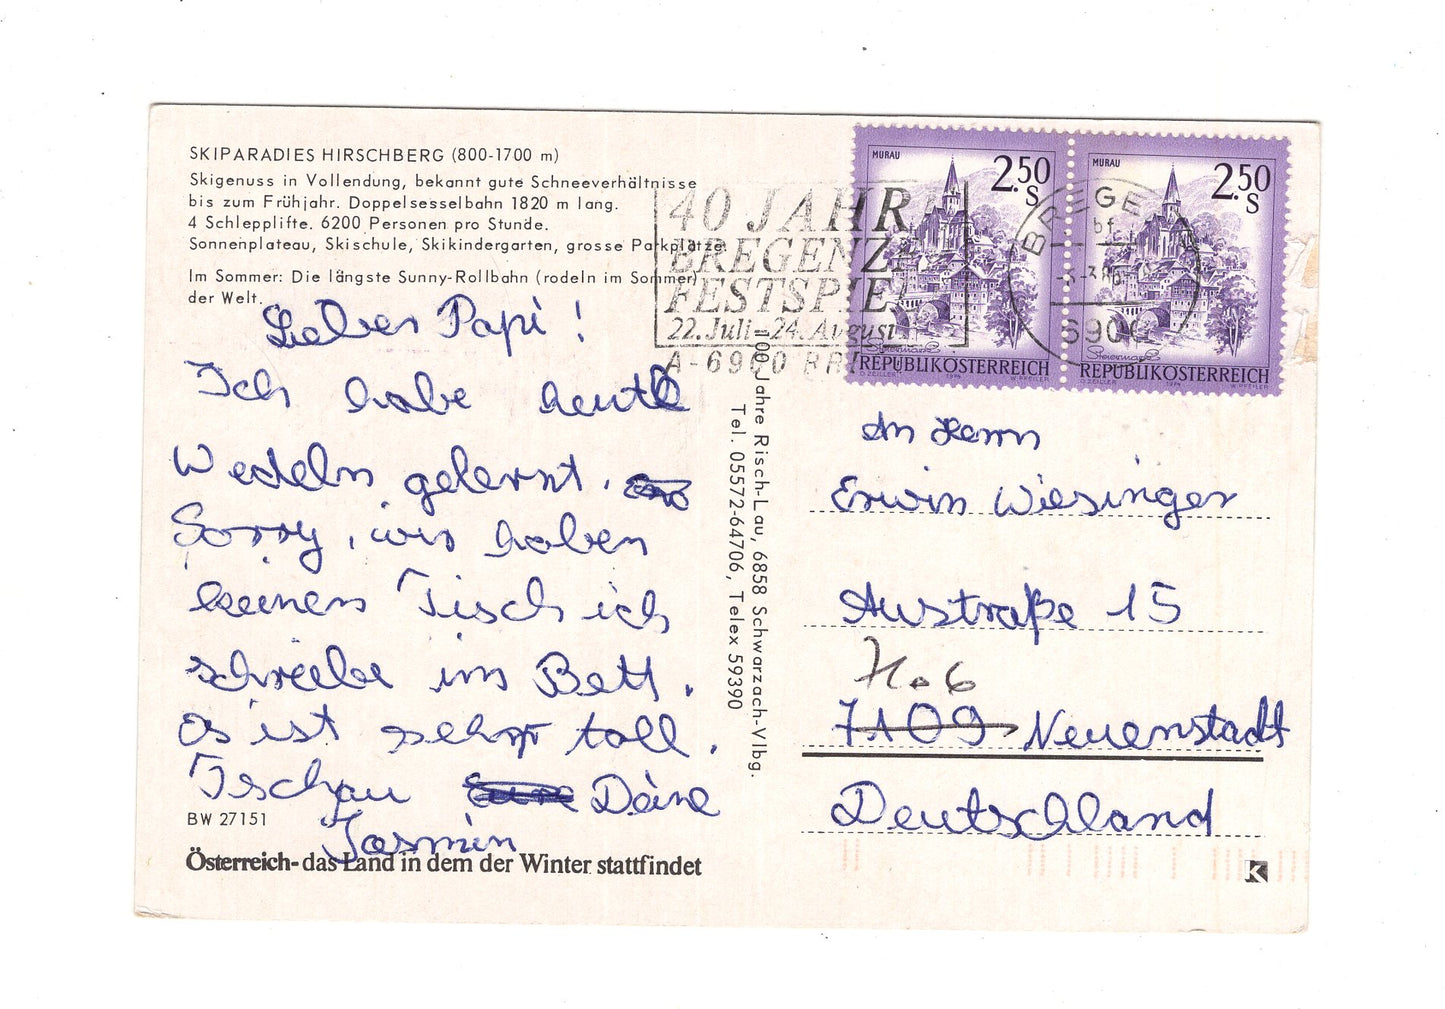 SKIPARADIES HIRSCHBERG (800-1700 m)
Skigenuss in Vollendung, bekannt gute Schneeverhältnisse
bis zum Frühjahr. Doppelsesselbahn 1820 m lang.
4 Schlepplifte. 6200 Personen pro Stunde.
Sonnenplateau, Skischule, Skikindergarten, grosse Parkplätze.
Im Sommer: Die längste Sunny-Rollbahn (rodeln im Sommer)
der Welt.
Lieber Papi!
Ich habe heute
Wedeln gelernt.
Sorry, wir haben
keinen Tisch ich
schreibe im Bett.
Es ist sehr toll.
Tschau Deine
Jasmin
BW 27151
Österreich-das Land in dem der Winter stattfindet
100 Jahre Risch-Lau, 6858 Schwarzach-Vlbg.
Tel. 05572-64706, Telex 59390
40 JAHR
BREGENZE
FESTSPIEL
22. Juli-24. August
A-6900 BRE
MURAU
2.50
S
Steiermark
REPUBLIK ÖSTERREICH
O. ZEILLER 1974 W. PFEILER
MURAU
2.50
S
Steiermark
REPUBLIK ÖSTERREICH
O. ZEILLER 1974 W. PFEILER
BREGE
6900
An Herrn
Erwin Wiesinger
Austraße 15
7106
7109 Neuenstadt
Deutschland
K